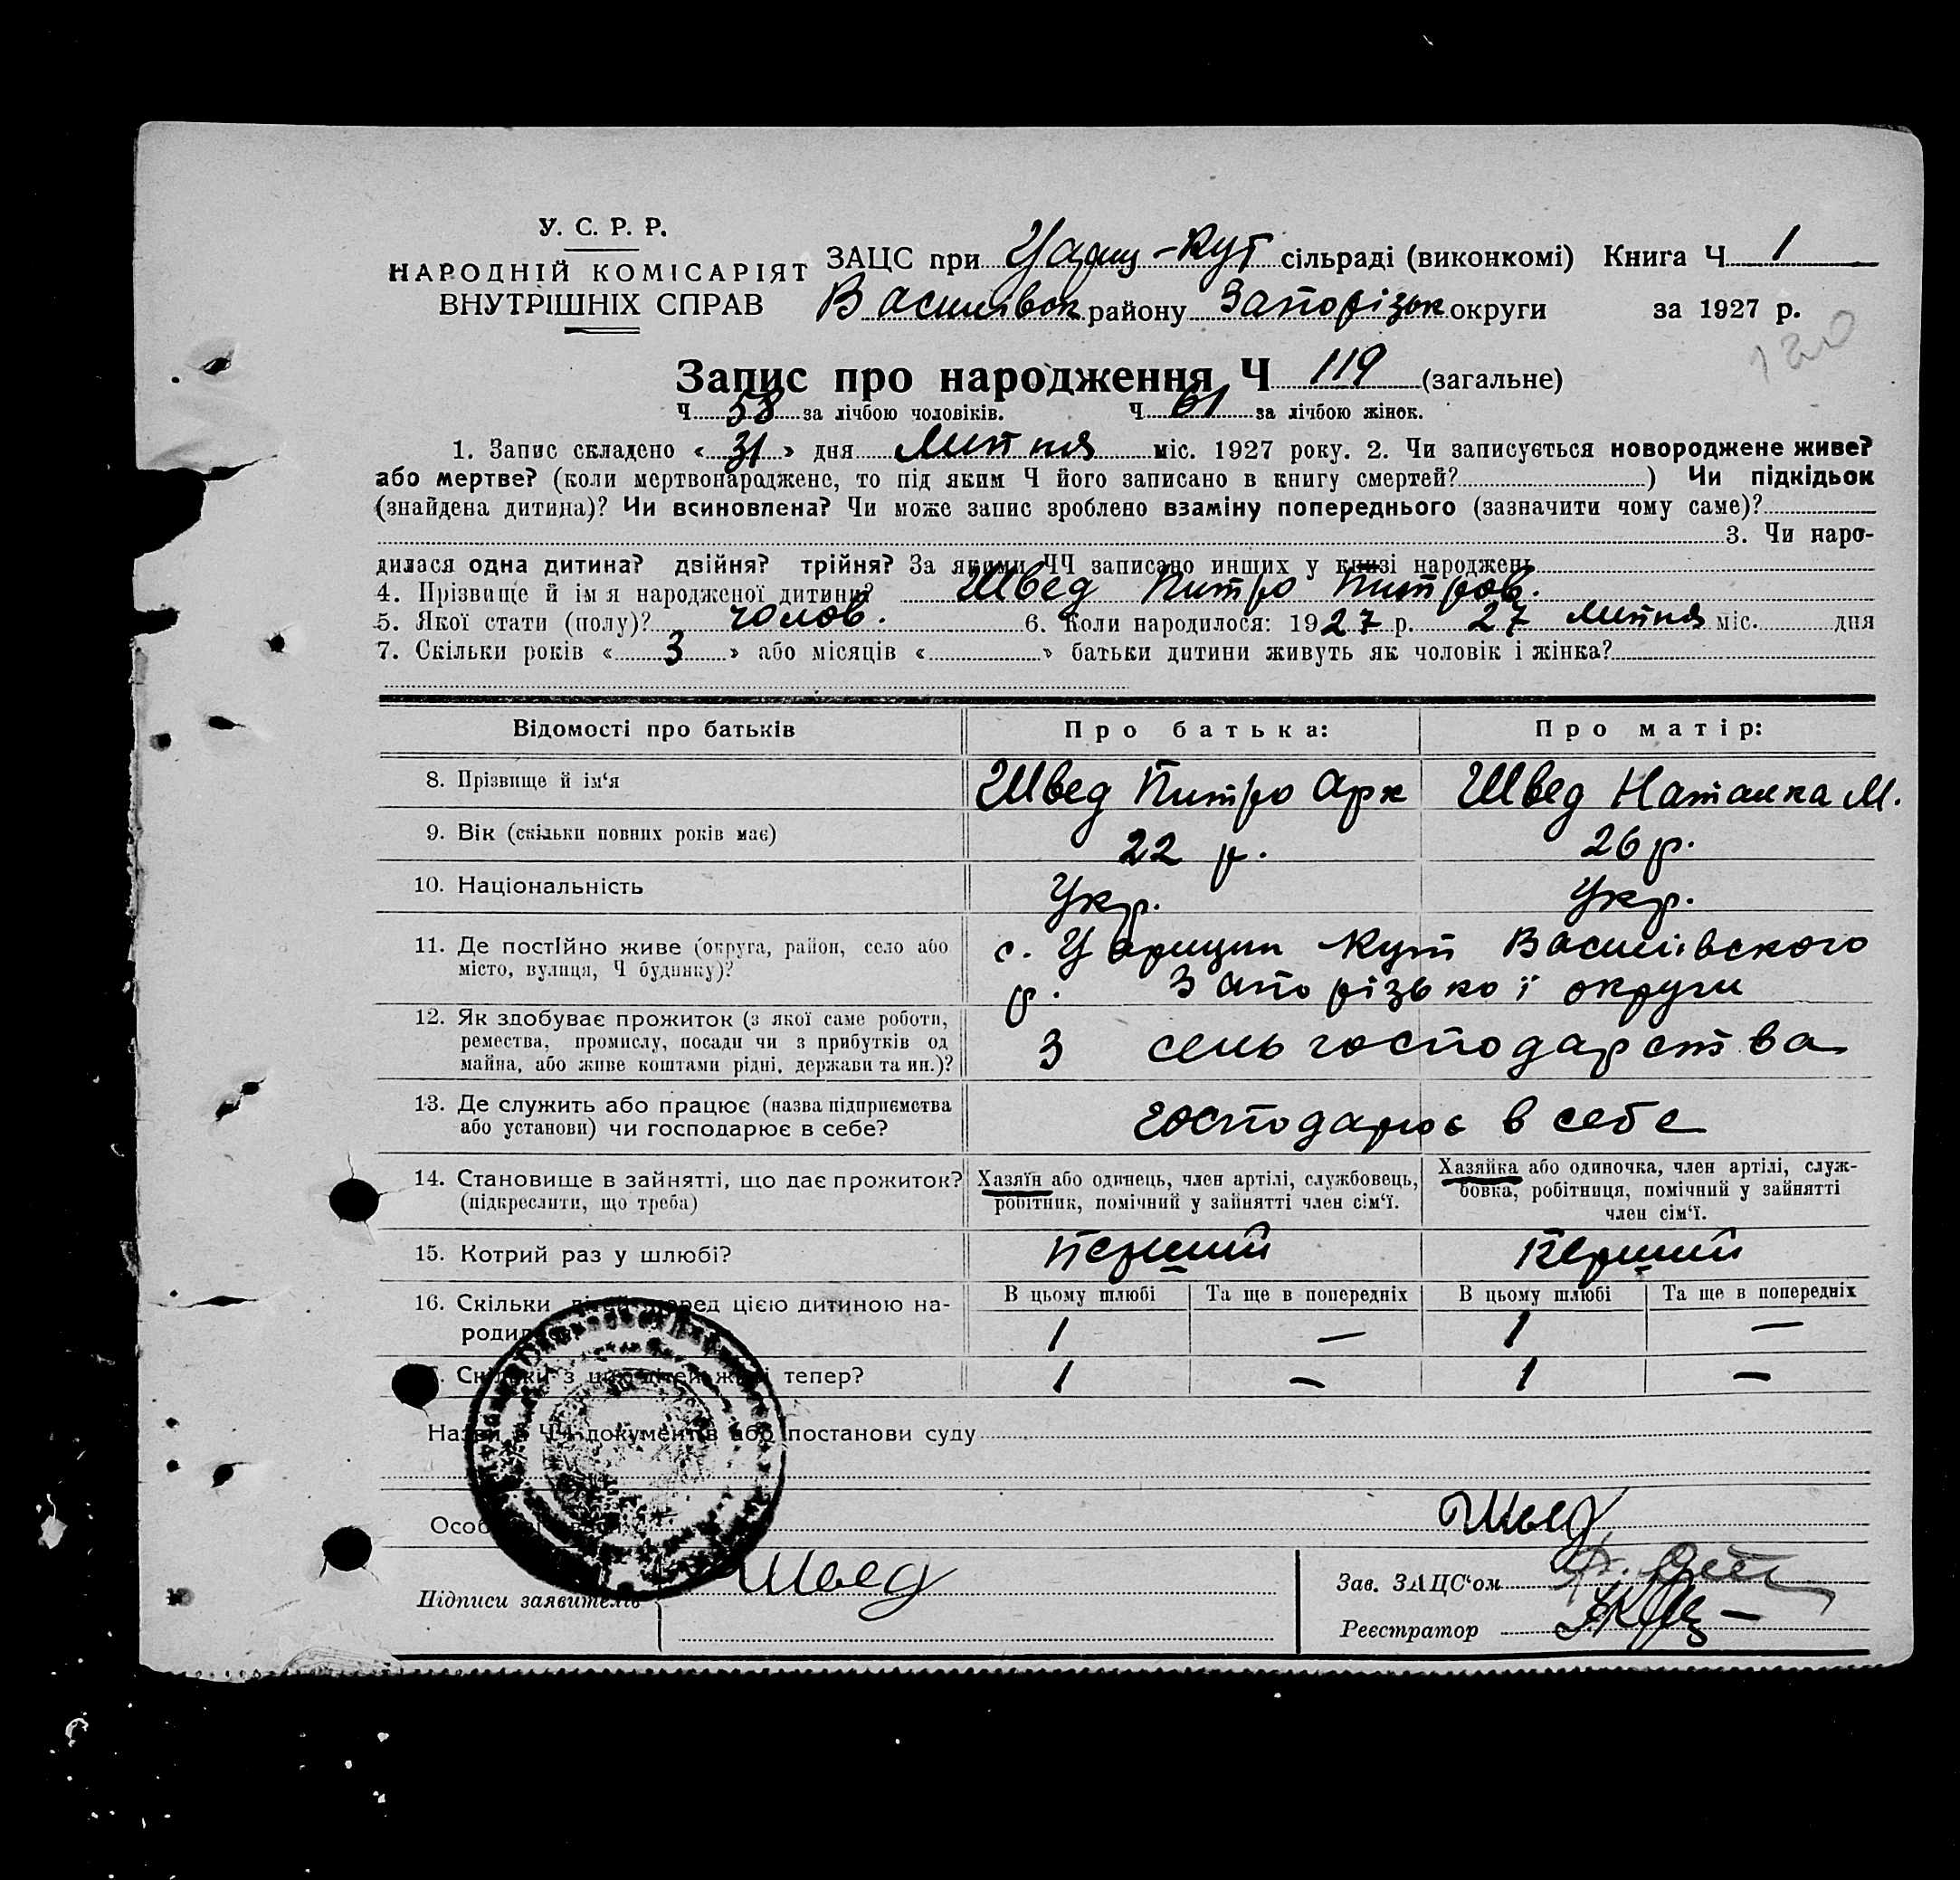 У. С. Р. Р.
НАРОДНІЙ КОМІСАРІЯТ
ВНУТРІШНІХ СПРАВ
ЗАЦС при Цариц-Кут сільраді (виконкомі) Книга Ч 1
Василівск району Запорізок округи за 1927 р.
120
Запис про народження Ч 119 (загальне)
Ч 58 за лічбою чоловіків. Ч 61 за лічбою жінок.
1. Запис складено « 31 » дня Липня міс. 1927 року. 2. Чи записується новороджене живе?
або мертве? (коли мертвонароджене, то під яким Ч його записано в книгу смертей? ) Чи підкідьок
(знайдена дитина)? Чи всиновлена? Чи може запис зроблено взаміну попереднього (зазначити чому саме)?
3. Чи наро-
дилася одна дитина? двійня? трійня? За якими ЧЧ записано инших у книзі народжень
4. Прізвище й ім я народженої дитини? Швед Питро Питров.
5. Якої стати (полу)? чолов. 6. Коли народилося: 1927 р. 27 липня міс. дня
7. Скільки років « 3 » або місяців « » батьки дитини живуть як чоловік і жінка?
Відомості про батьків Про батька: Про матір:
8. Прізвище й ім‘я Швед Питро Арк Швед Наталка М.
9. Вік (скільки повних років має) 22 р. 26 р.
10. Національність Укр. Укр.
11. Де постійно живе (округа, район, село або с. Царицин Кут Василівского
місто, вулиця, Ч будинку)? р. Запорізької округи
12. Як здобуває прожиток (з якої саме роботи,
ремества, промислу, посади чи з прибутків од З сельгосподарства
майна, або живе коштами рідні, держави та ин.)?
13. Де служить або працює (назва підприємства
або установи) чи господарює в себе? господарює в себе
14. Становище в зайнятті, що дає прожиток? Хазяїн або одинець, член артілі, службовець, Хазяйка або одиночка, член артілі, служ-
(підкреслити, що треба) робітник, помічний у зайнятті член сім‘ї. бовка, робітниця, помічний у зайнятті
член сім‘ї.
15. Котрий раз у шлюбі? Перший Перший
16. Скільки дітей перед цією дитиною на- В цьому шлюбі Та ще в попередніх В цьому шлюбі Та ще в попередніх
родилося 1 — 1 —
Скільки з цих дітей живі тепер? 1 — 1 —
Назви й ЧЧ документів або постанови суду
Швед
Підписи заявителів Швед Зав. ЗАЦС‘ом
Реєстратор